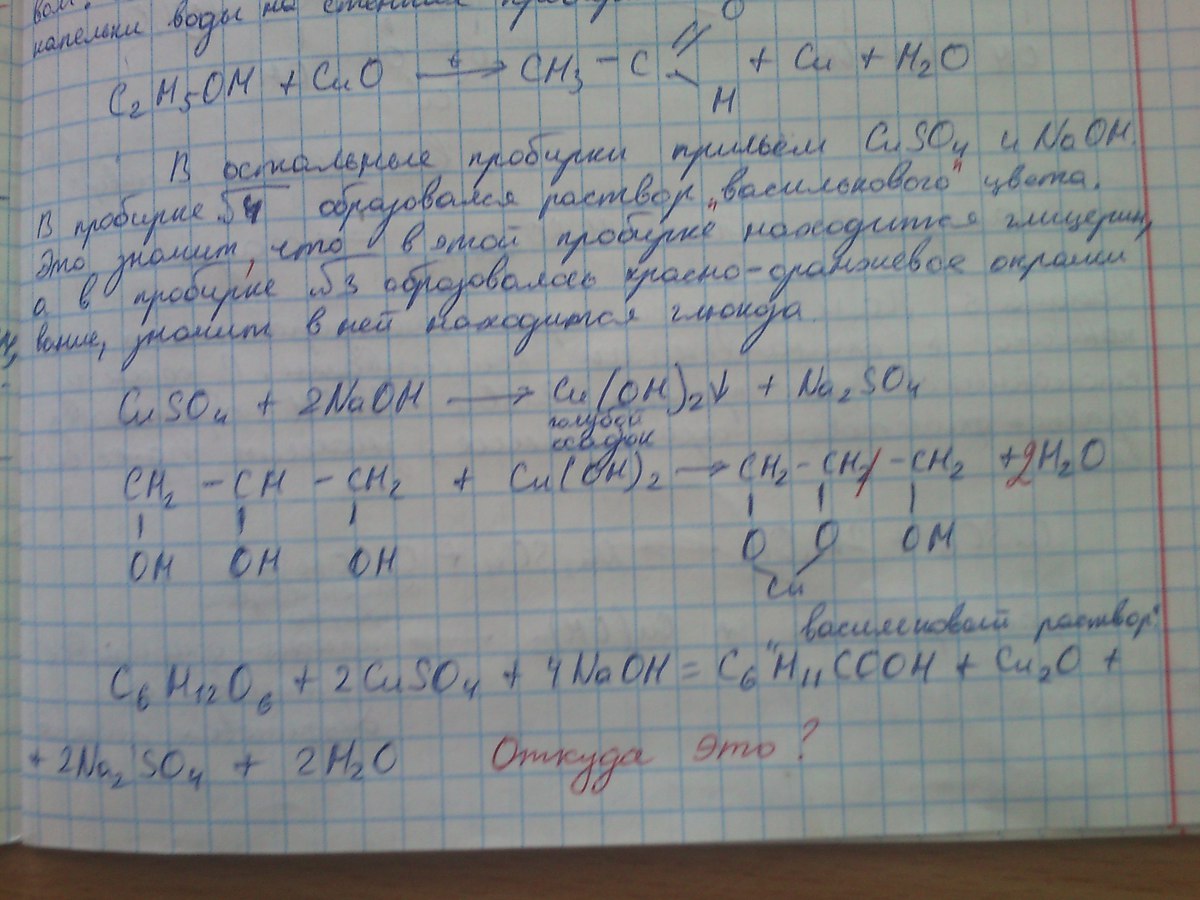 капельки воды на стенках
O
C₂H₅OH + CuO —t→ CH₃ – C + Cu + H₂O
H
В остальные пробирки прильём CuSO₄ и NaOH.
В пробирке №4 образовался раствор "василькового" цвета.
Это значит, что в этой пробирке находится глицерин,
а в пробирке №3 образовалось красно-оранжевое окраши
вание, значит в ней находится глюкоза.
CuSO₄ + 2NaOH → Cu(OH)₂↓ + Na₂SO₄
голубой
осадок
CH₂ – CH – CH₂ + Cu(OH)₂ → CH₂ – CH – CH₂ + 2H₂O
OH OH OH O O OH
Cu
"васильковый раствор"
C₆H₁₂O₆ + 2CuSO₄ + 4NaOH = C₆H₁₁COOH + Cu₂O +
+ 2Na₂SO₄ + 2H₂O Откуда это?